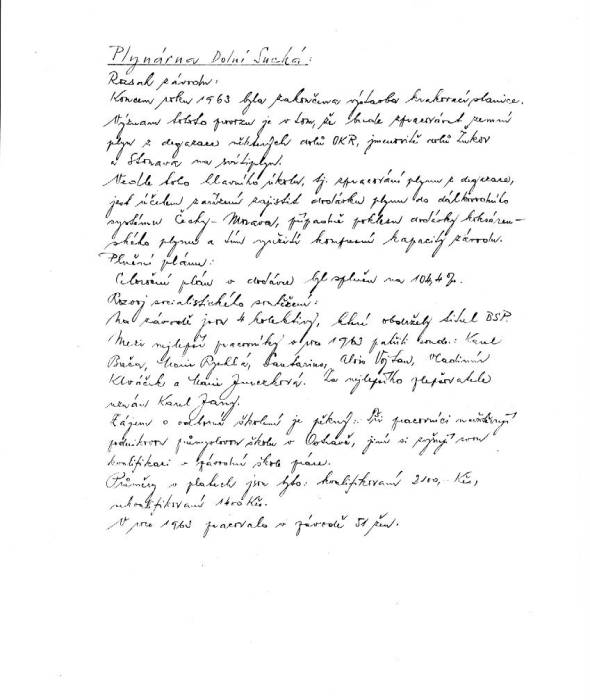 Plynárna Dolní Suchá:
Rozsah závodu:
Koncem roku 1963 byla zakončena výstavba krakovací stanice.
Význam tohoto provozu je v tom, že bude zpracovávat zemní
plyn z degazace některých dolů OKR, jmenovitě dolů Žukov
a Stonava na svítiplyn.
Vedle toho hlavního úkolu, tj. zpracování plynu z degazace,
jest účelem zařízení zajistit dodávku plynu do dálkovodního
systému Čechy - Morava, případně pokles dodávky koksáren-
ského plynu a tím využití kompresní kapacity závodu.
Plnění plánu:
Celoroční plán v dodávce byl splněn na 104,4 %.
Rozvoj socialistického soutěžení:
Na závodě jsou 4 kolektivy, které obdržely titul BSP.
Mezi nejlepší pracovníky v roce 1963 patřili soudr.: Karel
Marie Vojtan, Vladimír
a Marie Za nejlepšího zlepšovatele
uznán Karel
Zájem o odborné školení je pěkný: Tři pracovníci navštěvují
podnikovou průmyslovou školu v Ostravě, jiní si zvyšují svou
kvalifikaci v závodní škole práce.
Průměry v platech jsou tyto: kvalifikovaní 2100,- Kčs,
nekvalifikovaní 1400 Kčs.
V roce 1963 pracovalo v závodě 51 žen.